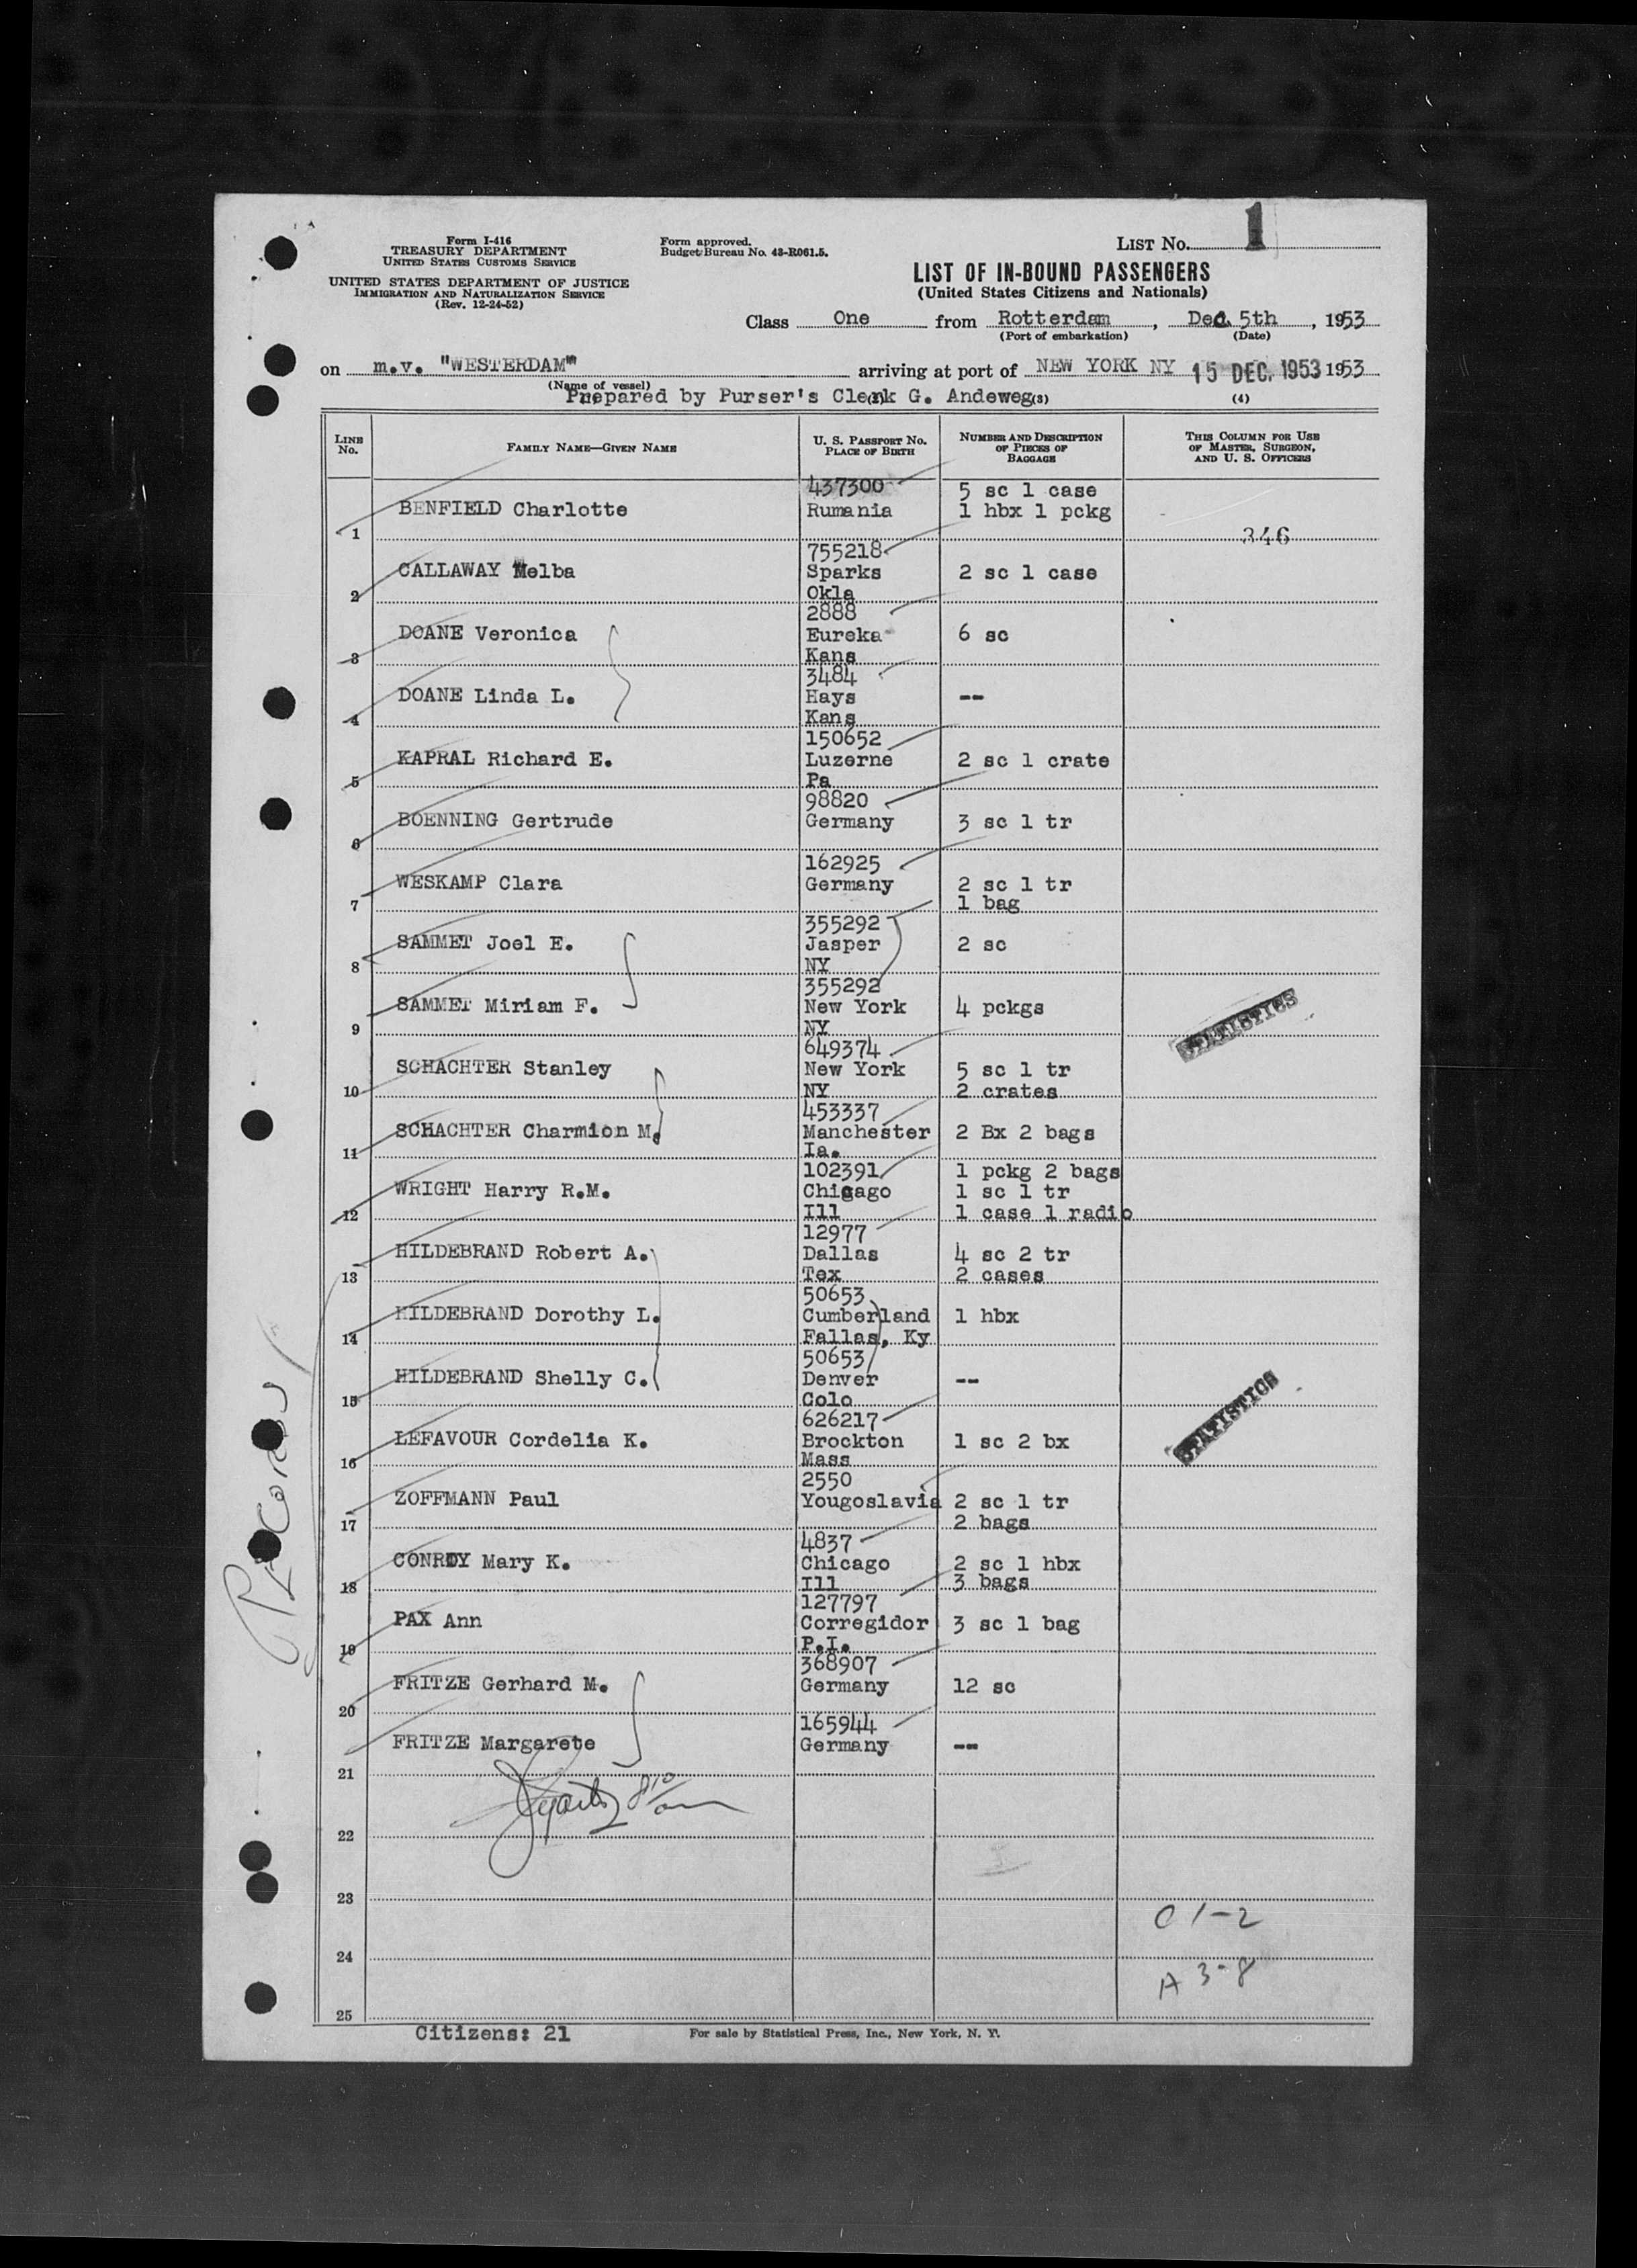 Form I-416
TREASURY DEPARTMENT
UNITED STATES CUSTOMS SERVICE
UNITED STATES DEPARTMENT OF JUSTICE
IMMIGRATION AND NATURALIZATION SERVICE
(Rev. 12-24-52)
Form approved.
Budget Bureau No. 43-R061.5.
LIST No. 1
LIST OF IN-BOUND PASSENGERS
(United States Citizens and Nationals)
Class One from Rotterdam, Dec. 5th, 1953
(Port of embarkation) (Date)
on m.v. "WESTERDAM" arriving at port of NEW YORK NY 15 DEC. 1953 1953
(Name of vessel)
Prepared by Purser's Clerk G. Andeweg (3) (4)
LINE No.
FAMILY NAME—GIVEN NAME
U. S. PASSPORT No.
PLACE OF BIRTH
NUMBER AND DESCRIPTION
OF PIECES OF
BAGGAGE
THIS COLUMN FOR USE
OF MASTER, SURGEON,
AND U. S. OFFICERS
437300 5 sc 1 case
BENFIELD Charlotte Rumania 1 hbx 1 pckg
1 346
755218
CALLAWAY Melba Sparks 2 sc 1 case
2 Okla
2888
DOANE Veronica Eureka 6 sc
3 Kans
3484
DOANE Linda L. Hays --
4 Kans
150652
KAPRAL Richard E. Luzerne 2 sc 1 crate
5 Pa
98820
BOENNING Gertrude Germany 3 sc 1 tr
6
162925
WESKAMP Clara Germany 2 sc 1 tr
7 1 bag
355292
SAMMET Joel E. Jasper 2 sc
8 NY
355292
SAMMET Miriam F. New York 4 pckgs
9 NY
STATISTICS
649374
SCHACHTER Stanley New York 5 sc 1 tr
10 NY 2 crates
453337
SCHACHTER Charmion M. Manchester 2 Bx 2 bags
11 Ia.
102391 1 pckg 2 bags
WRIGHT Harry R.M. Chicago 1 sc 1 tr
12 Ill 1 case 1 radio
12977
HILDEBRAND Robert A. Dallas 4 sc 2 tr
13 Tex 2 cases
50653
HILDEBRAND Dorothy L. Cumberland 1 hbx
14 Fallas, Ky
50653
HILDEBRAND Shelly C. Denver --
15 Colo
STATISTICS
626217
LEFAVOUR Cordelia K. Brockton 1 sc 2 bx
16 Mass
2550
ZOFFMANN Paul Yougoslavia 2 sc 1 tr
17 2 bags
4837
CONROY Mary K. Chicago 2 sc 1 hbx
18 Ill 3 bags
127797
PAX Ann Corregidor 3 sc 1 bag
19 P.I.
368907
FRITZE Gerhard M. Germany 12 sc
20
165944
FRITZE Margarete Germany --
21
22
23
C 1-2
24
A 3-8
25
Citizens: 21
For sale by Statistical Press, Inc., New York, N. Y.